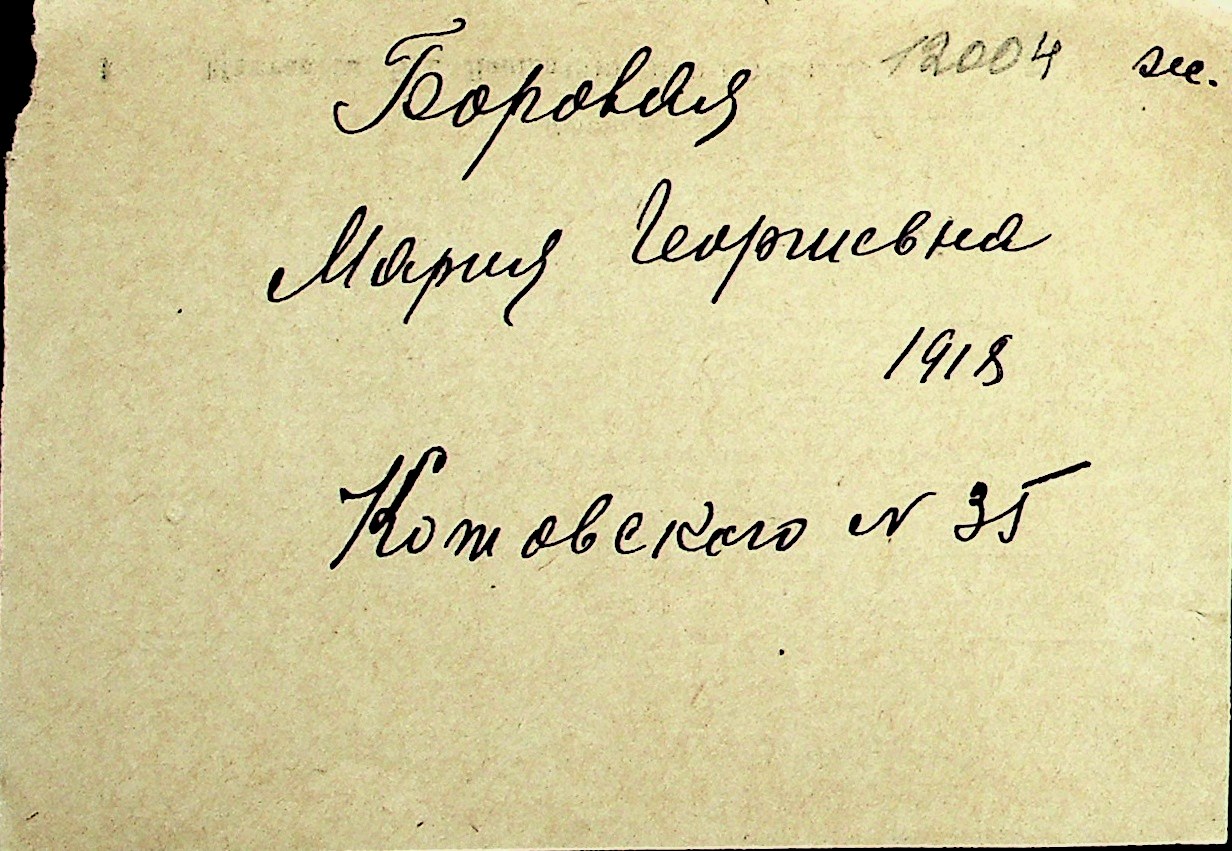 Боровая 12004 ж.
Мария Георгиевна
1918
Котовского N 35